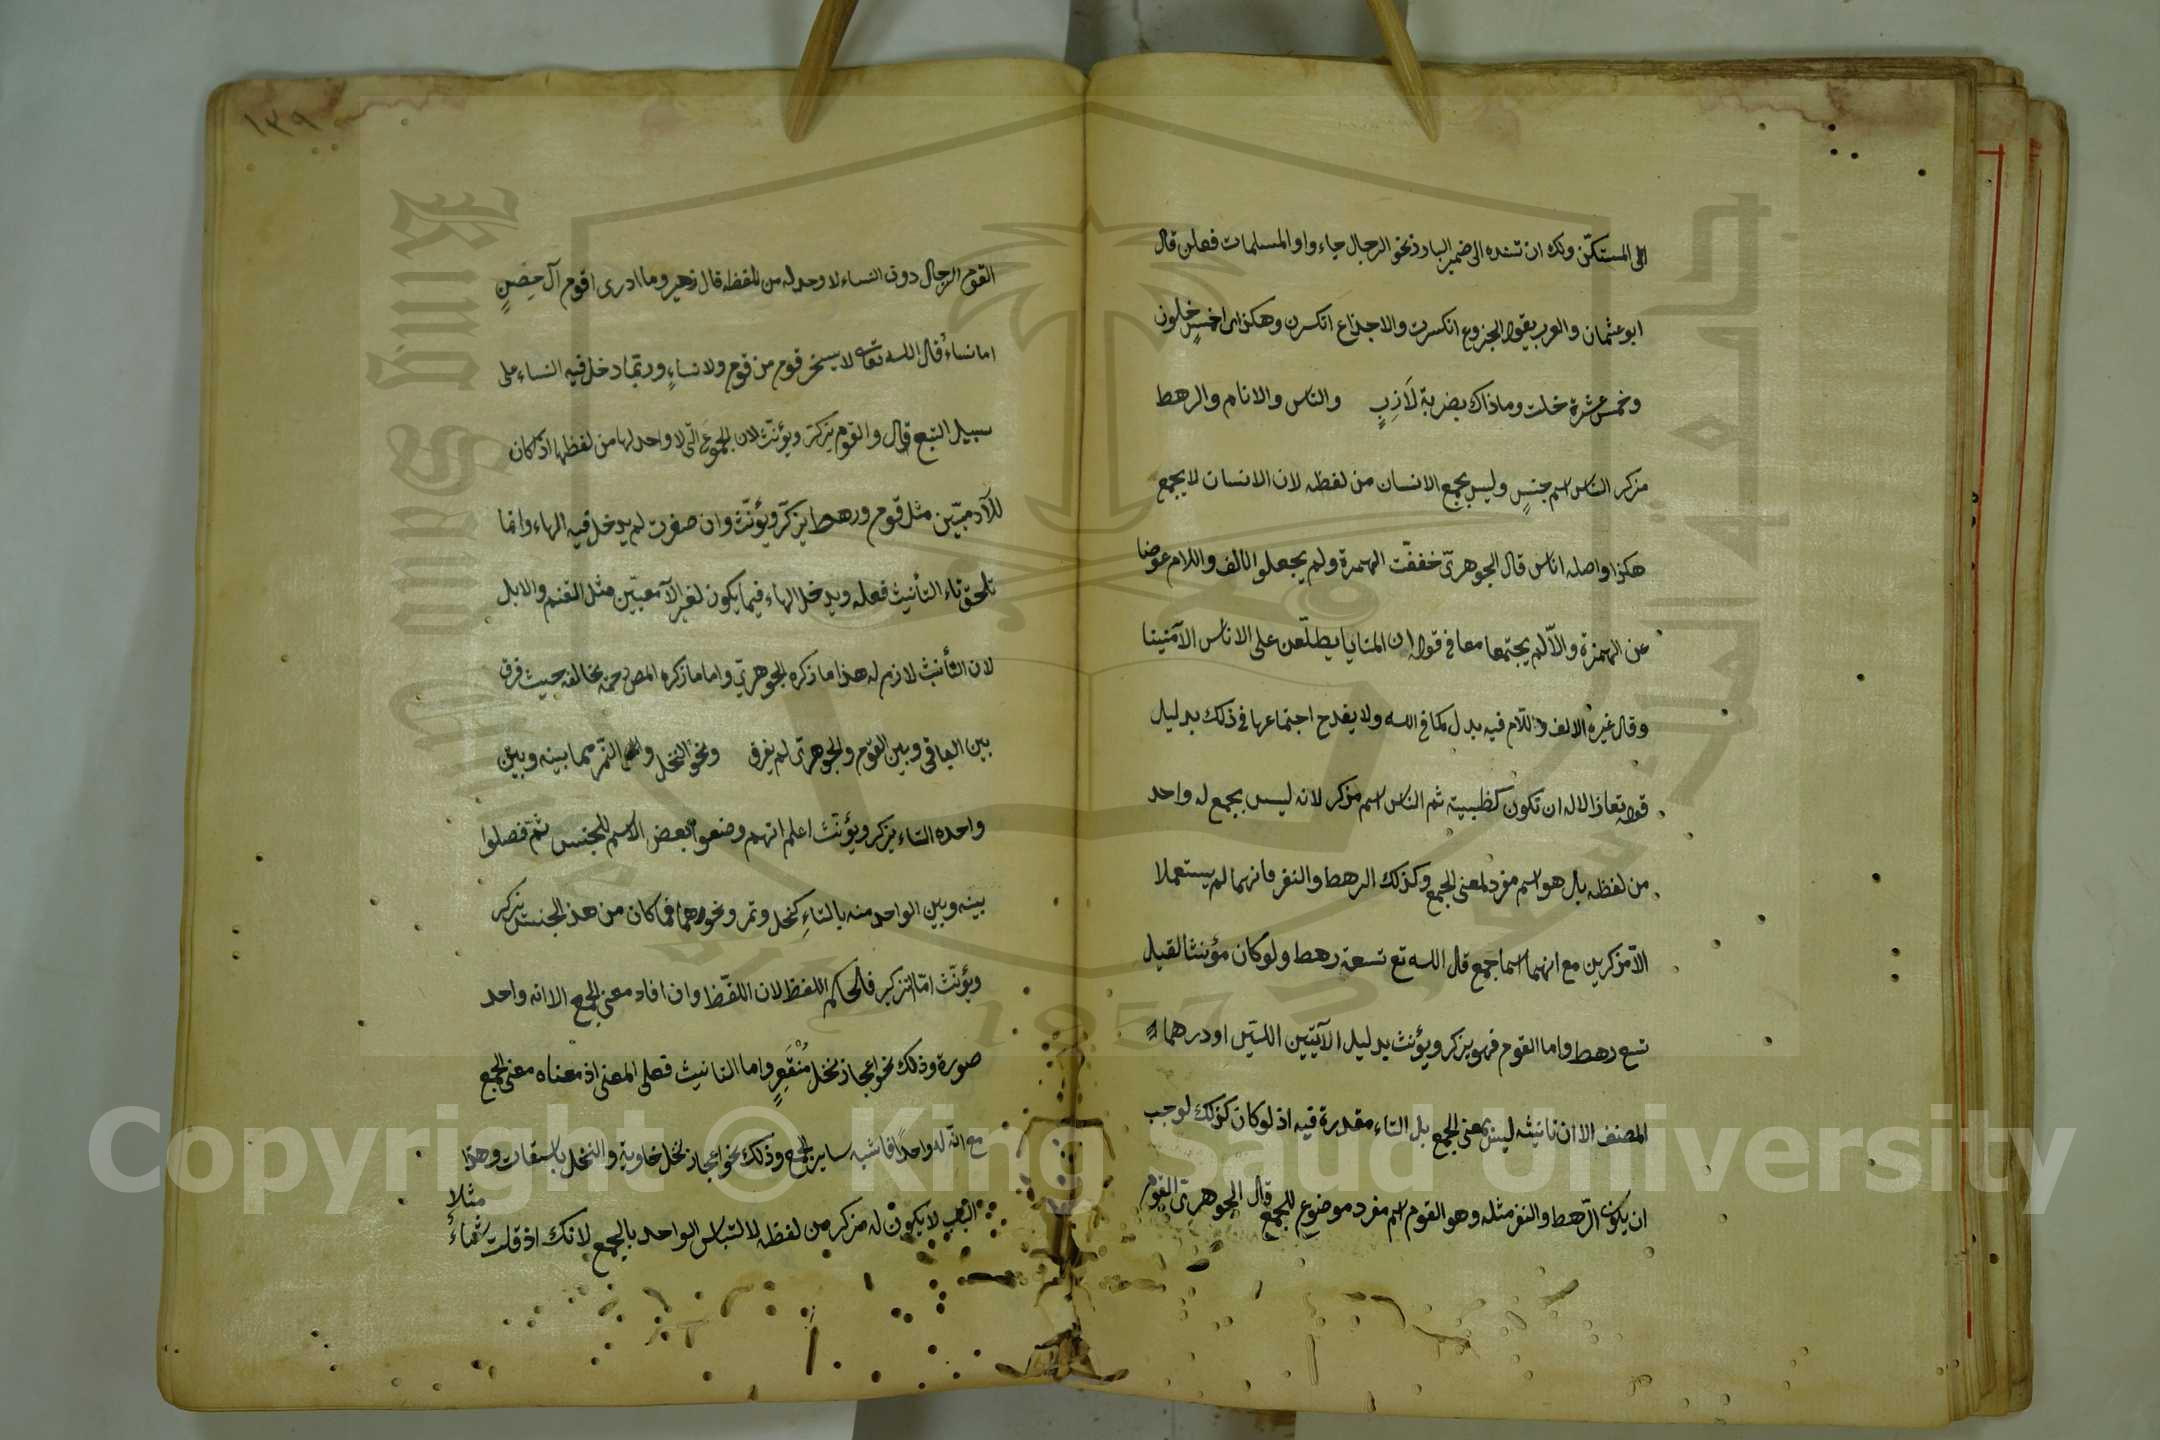 الى المستكنّ ولك ان تسنده الى ضمير البارز نحو الرجال جاءوا والمسلمات فعلن قال
ابو عثمان والعرب يقول الجذوع انكسرت والاجذاع انكسرن وهكذا لخمس خلون
وخمس عشرة خلت وما ذاك بضربة لَازِبٍ والناس والانام والرهط
مذكر الناس اسم جنسٍ وليس بجمع الانسان من لفظه لان الانسان لا يجمع
هكذا واصله اناس قال الجوهريّ خففّت الهمزة ولم يجعلوا الالف واللام عوضا
عن الهمزة والّا لم يجتمعا معا في قوله ان المنايا يطلّعن على الاناس الآمنينا
وقال غيره الالف واللّام فيه بدل كما في الله ولا يقدح اجتماعها في ذلك بدليل
قوله تعاذ الاله ان تكون كظبية ثم الناس اسم مذكر لانه ليس بجمع له واحد
من لفظه بل هو اسم مفرد لمعنى الجمع وكذلك الرهط والنفر فانهما لم يستعملا
الّا مذكرين مع انهما اسما جمع قال الله تع تسعة رهط ولو كان مؤنثا لقيل
تسع رهط واما القوم فهو يذكر ويؤنث بدليل الآيتين اللتين اوردهما
المصنف الا ان تانيثه ليس بمعنى الجمع بل التاء مقدرة فيه اذ لو كان كذلك لوجب
ان يكون الرّهط والنفر مثله وهو القوم اسم مفرد موضوع للجمع قال الجوهريّ القوم
١٣٩
القوم الرجال دون النساء لا وحد له من للفظه قال زهير وما ادرى اقوم آل حِصْنٍ
ام نساءُ قال الله تعالى لا يسخر قوم من قوم ولا نساءٍ وربّما دخل فيه النساء على
سبيل التبع قال والقوم يذكّر ويؤنّث لان الجموع الّتى لا واحد لها من لفظها اذ كان
للآدميّين مثل قوم ورهط يذكّر ويؤنّث وان صغرت لم يدخل فيه الهاء وانما
تلحق تاء التأنيث فعله ويدخل الهاء فيما يكون لغير الآدميّين مثل الغنم والابل
لان التأنيث لازم له هذا ما ذكره الجوهريّ واما ما ذكره المص رحمه يخالفه حيث فرق
بين الباقى وبين القوم والجوهرىّ لم يفرق ونحو النخل والتّمر مما بينه وبين
واحده التاء يذكر ويؤنّث اعلم انهم وضعوا بعض الاسم للجنس ثمّ فصلوا
بينه وبين الواحد منه بالتاءِ كنخل وتمر ونحوهما فما كان من هذ الجنس يذكر
ويؤنّث امّا التذكير فلحكم اللفظ لان اللفظ وان افاد معنى الجمع الا انه واحد
صورة وذلك نحو اعجاز نخل مُنْقَعِرٍ واما التانيث فعلى المعنى اذ معناه معنى الجمع
مع انّه له واحدًا فاشبه ساير الجمع وذلك نحو اعجاز نخل خاوية والنخل باسقات وهذا
الباب لا يكون له مذكر من لفظه لالتباس الواحد بالجمع لانك اذ قلت مثلا شاءُ
King Saud University
1957
Copyright © King Saud University